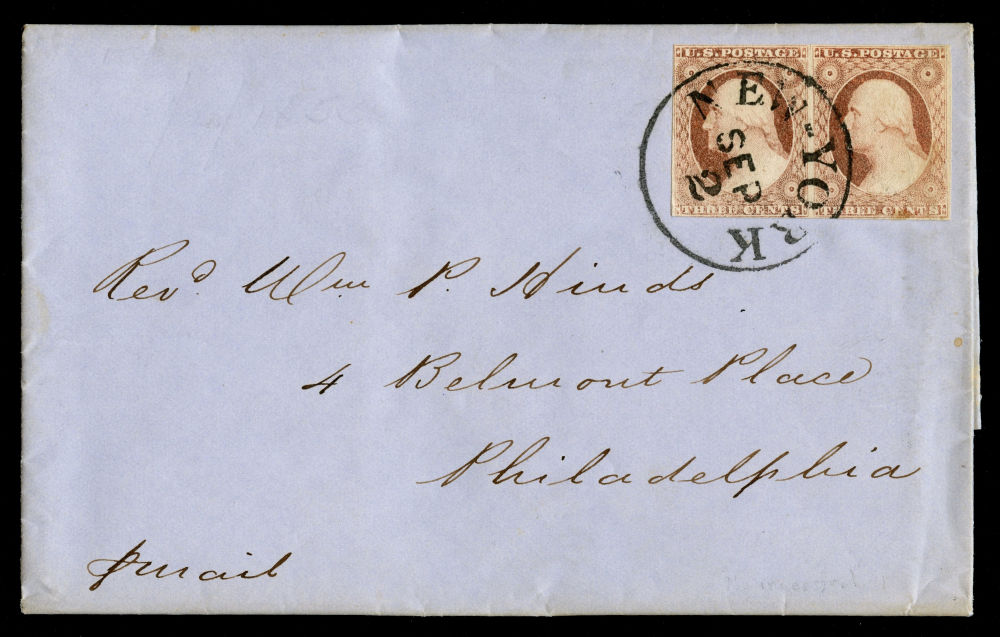 U.S. POSTAGE U.S. POSTAGE
NEW-YORK
SEP
2
THREE CENTS THREE CENTS
Revd. Wm P. Hinds
4 Belmont Place
Philadelphia
pmail